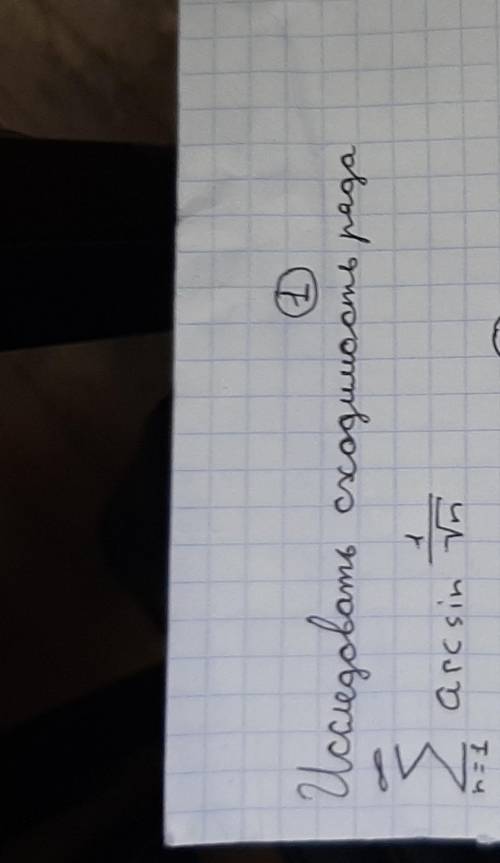 ①
Исследовать сходимость ряда
∞
∑ arcsin 1/√n
n=1